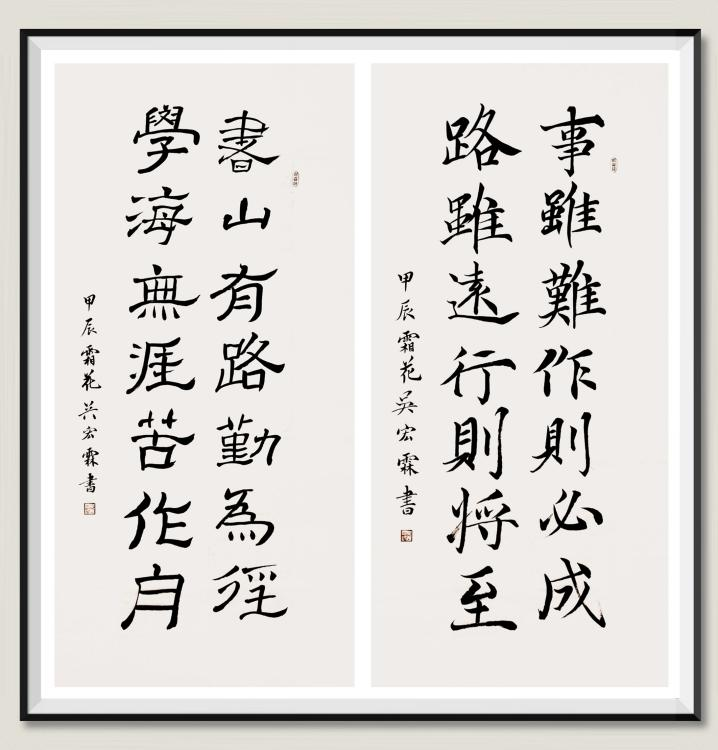 事雖難作則必成
路雖遠行則将至
甲辰霜花吳宏霖書
書山有路勤為徑
學海無涯苦作舟
甲辰霜花吳宏霖書